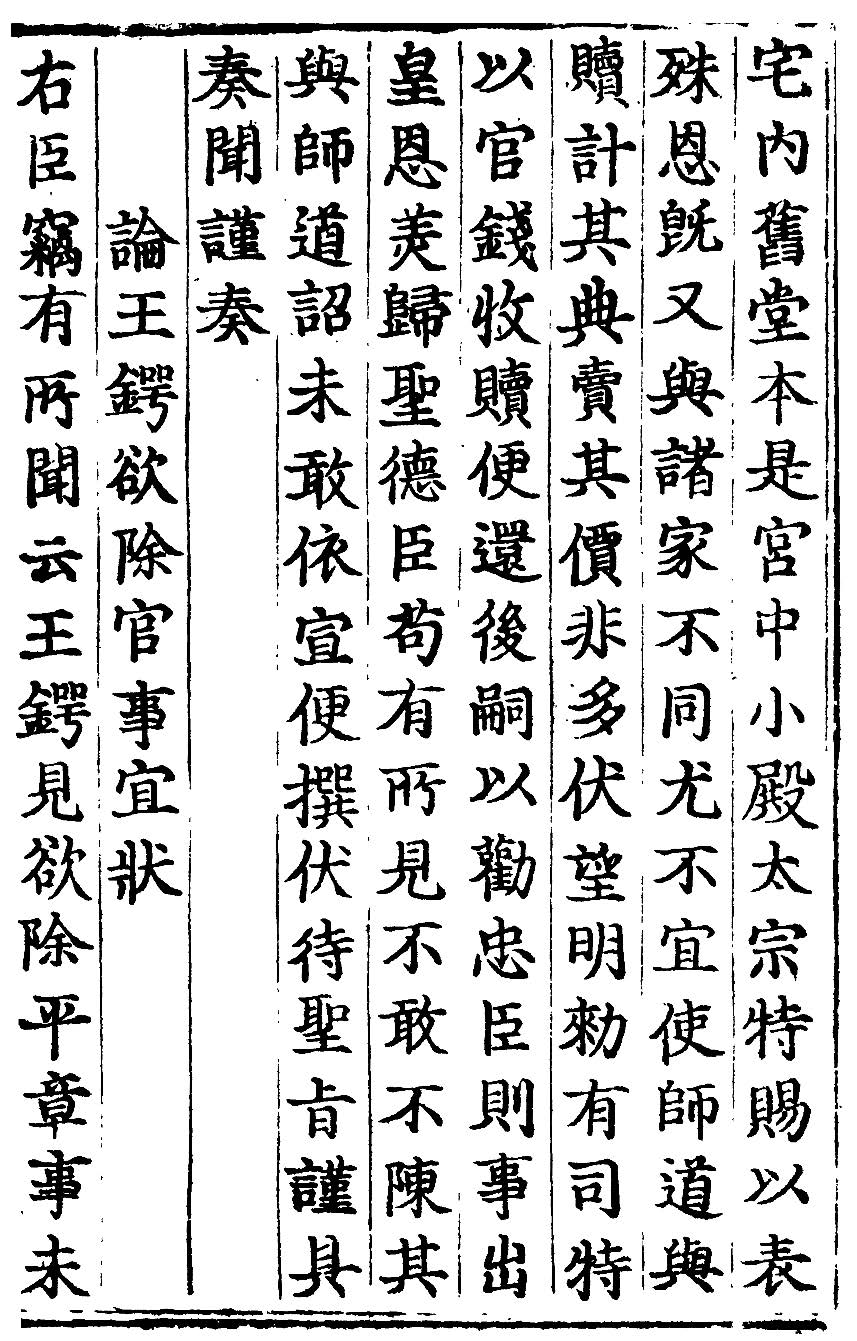 宅内舊堂本是宮中小殿太宗特賜以表
殊恩旣又與諸家不同尤不宜使師道與
贖計其典賣其價非多伏望明勑有司特
以官錢收贖便還後嗣以勸忠臣則事出
皇恩羙歸聖德臣苟有所見不敢不陳其
與師道詔未敢依宣便撰伏待聖旨謹具
奏聞謹奏
論王鍔欲除官事宜狀
右臣竊有所聞云王鍔見欲除平章事未